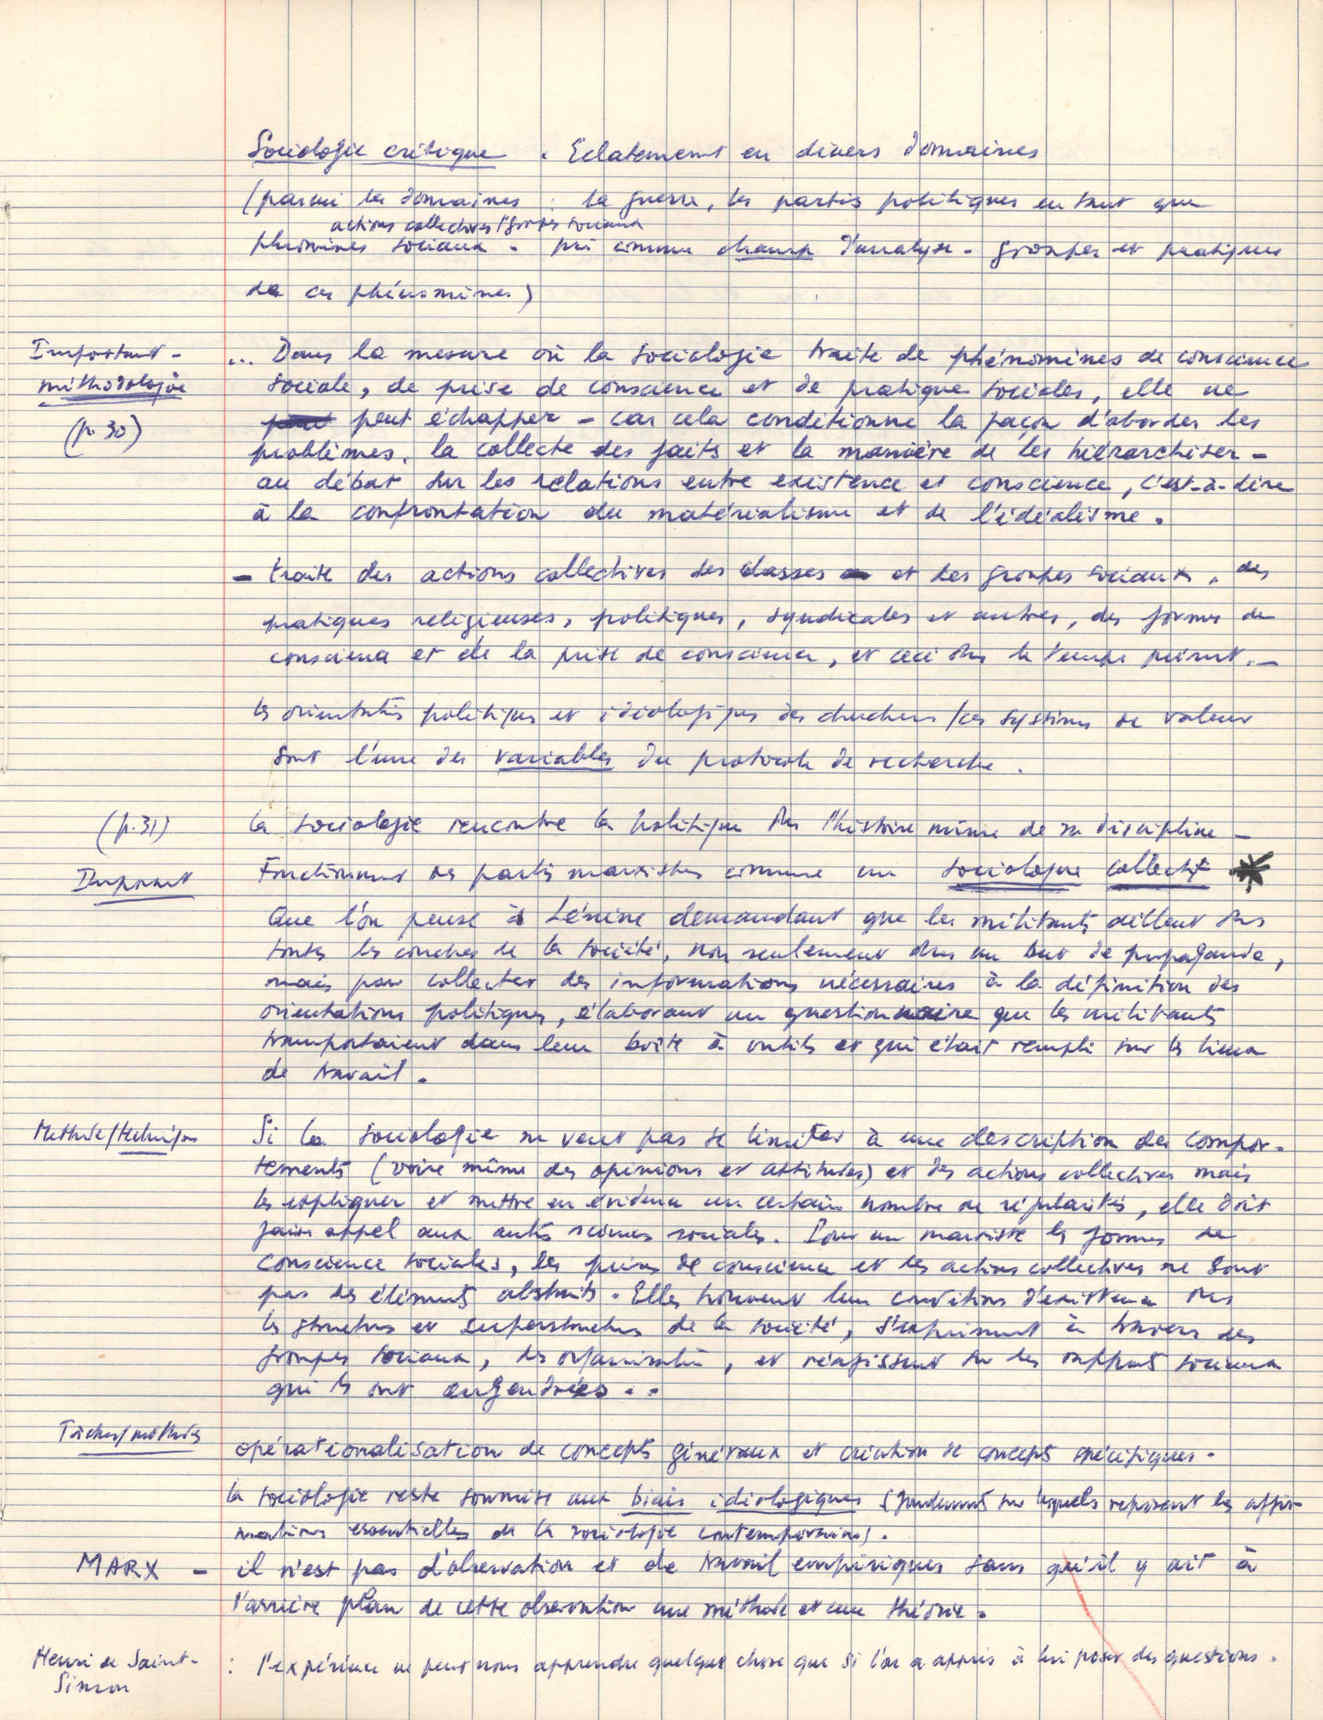 Sociologie critique . Eclatement en divers domaines
(parmi les domaines : la guerre, les partis politiques en tant que
actions collectives / groupes sociaux
phénomènes sociaux - pris comme champ d'analyse - groupes et pratiques
de ces phénomènes)
Important -
méthodologie
(p. 30)
... Dans la mesure où la sociologie traite de phénomènes de conscience
sociale, de prise de conscience et de pratique sociales, elle ne
peut échapper - car cela conditionne la façon d'aborder les
problèmes, la collecte des faits et la manière de les hiérarchiser -
au débat sur les relations entre existence et conscience, c'est-à-dire
à la confrontation du matérialisme et de l'idéalisme.
- traite des actions collectives des classes et des groupes sociaux, des
pratiques religieuses, politiques, syndicales et autres, des formes de
conscience et de la prise de conscience, et ceci dans le temps présent. -
les orientations politiques et idéologiques des chercheurs / ces systèmes de valeur
sont l'une des variables du protocole de recherche.
(p. 31)
la sociologie rencontre la politique dans l'histoire même de sa discipline -
Important
Fonctionnement des partis marxistes comme un sociologue collectif *
Que l'on pense à Lénine demandant que les militants aillent dans
toutes les couches de la société, non seulement dans un but de propagande,
mais pour collecter des informations nécessaires à la définition des
orientations politiques, élaborant un questionnaire que les militants
transportaient dans leur boîte à outils et qui était rempli sur les lieux
de travail.
Méthode/techniques
Si la sociologie ne veut pas se limiter à une description des compor-
tements (voire même des opinions et attitudes) et des actions collectives mais
les expliquer et mettre en évidence un certain nombre de régularités, elle doit
faire appel aux autres sciences sociales. Pour un marxiste les formes de
conscience sociales, les prises de conscience et les actions collectives ne sont
pas des éléments abstraits. Elles trouvent leur conditions d'existence dans
les structures et superstructures de la société, s'expriment à travers des
groupes sociaux, des organisations, et réagissent sur les rapports sociaux
qui les ont engendrées..
Tâches/méthodes
opérationalisation de concepts généraux et création de concepts spécifiques.
la sociologie reste soumise aux biais idéologiques (fondements sur lesquels reposent les affir-
mations essentielles de la sociologie contemporaine).
MARX - il n'est pas d'observation et de travail empiriques sans qu'il y ait à
l'arrière plan de cette observation une méthode et une théorie.
Henri de Saint-
Simon
: l'expérience ne peut nous apprendre quelque chose que si l'on a appris à lui poser des questions.